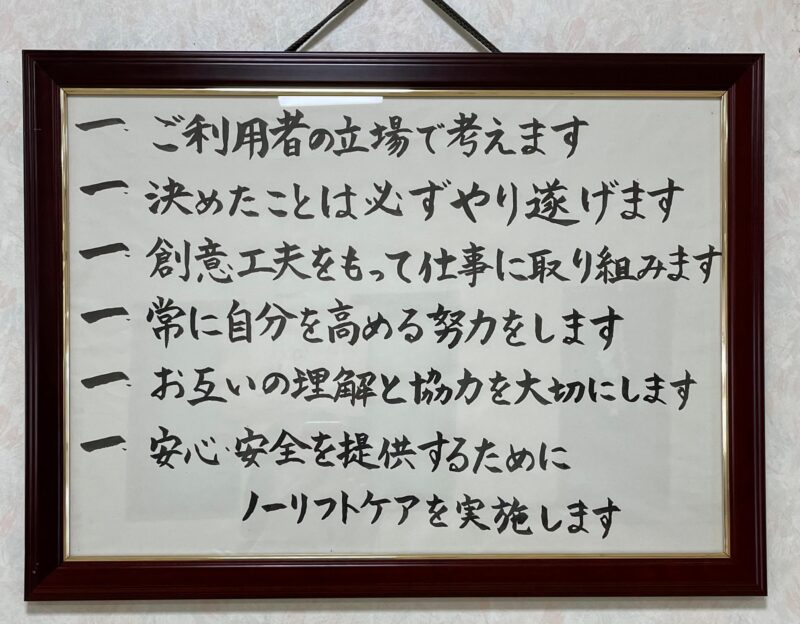 一、ご利用者の立場で考えます
一、決めたことは必ずやり遂げます
一、創意工夫をもって仕事に取り組みます
一、常に自分を高める努力をします
一、お互いの理解と協力を大切にします
一、安心・安全を提供するために
ノーリフトケアを実施します